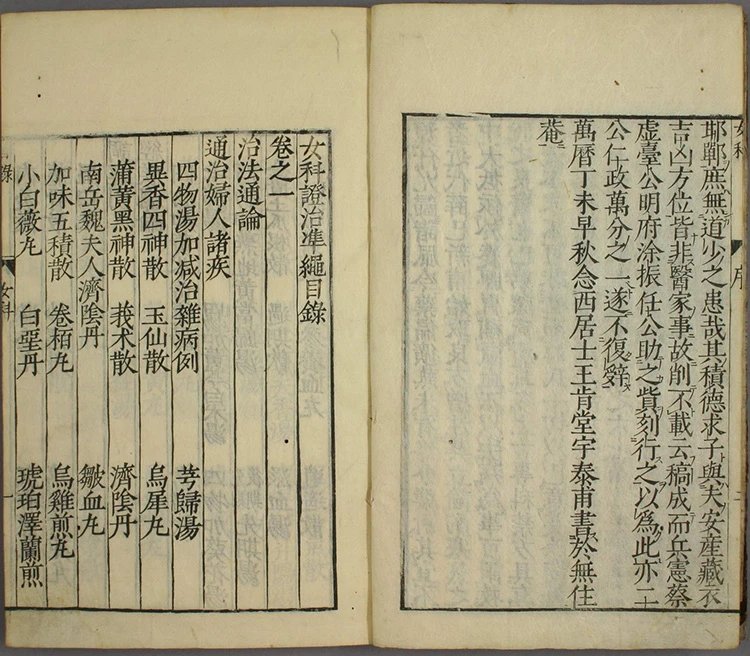 耶鄲庶無道少之患哉其積德求子與夫安産藏衣
吉凶方位皆非醫家事故削不載云稿成而兵憲蔡
虚臺公明府涂振任公助之貲刻行之以爲此亦二
公仁政萬分之一遂不復辤
萬曆丁未早秋念西居士王肯堂宇泰甫書於無住
菴
序
二
女科證治準繩目錄
卷之一
治法通論
通治婦人諸疾
四物湯加減治雜病例 芎歸湯
異香四神散 玉仙散 烏犀丸
蒲黃黑神散 莪术散 濟陰丹
南岳魏夫人濟陰丹 皺血丸
加味五積散 卷栢丸 烏雞煎丸
小白薇丸 白堊丹 琥珀澤蘭煎
女科
一